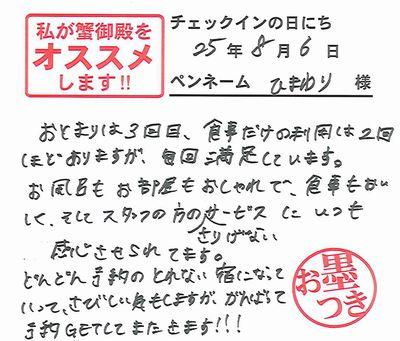 私が蟹御殿を
オススメ
します!!
チェックインの日にち
25年8月6日
ペンネーム ひまわり 様
おとまりは3回目、食事だけの利用は2回
ほどありますが、毎回満足しています。
お風呂もお部屋もおしゃれで、食事もおい
しく、そしてスタッフの方のサービスにいつも
さりげない
感じさせられてます。
どんどん予約のとれない宿になって
いって、さびしい気もしますが、がんばって
予約GETしてまたきます!!!
お墨つき